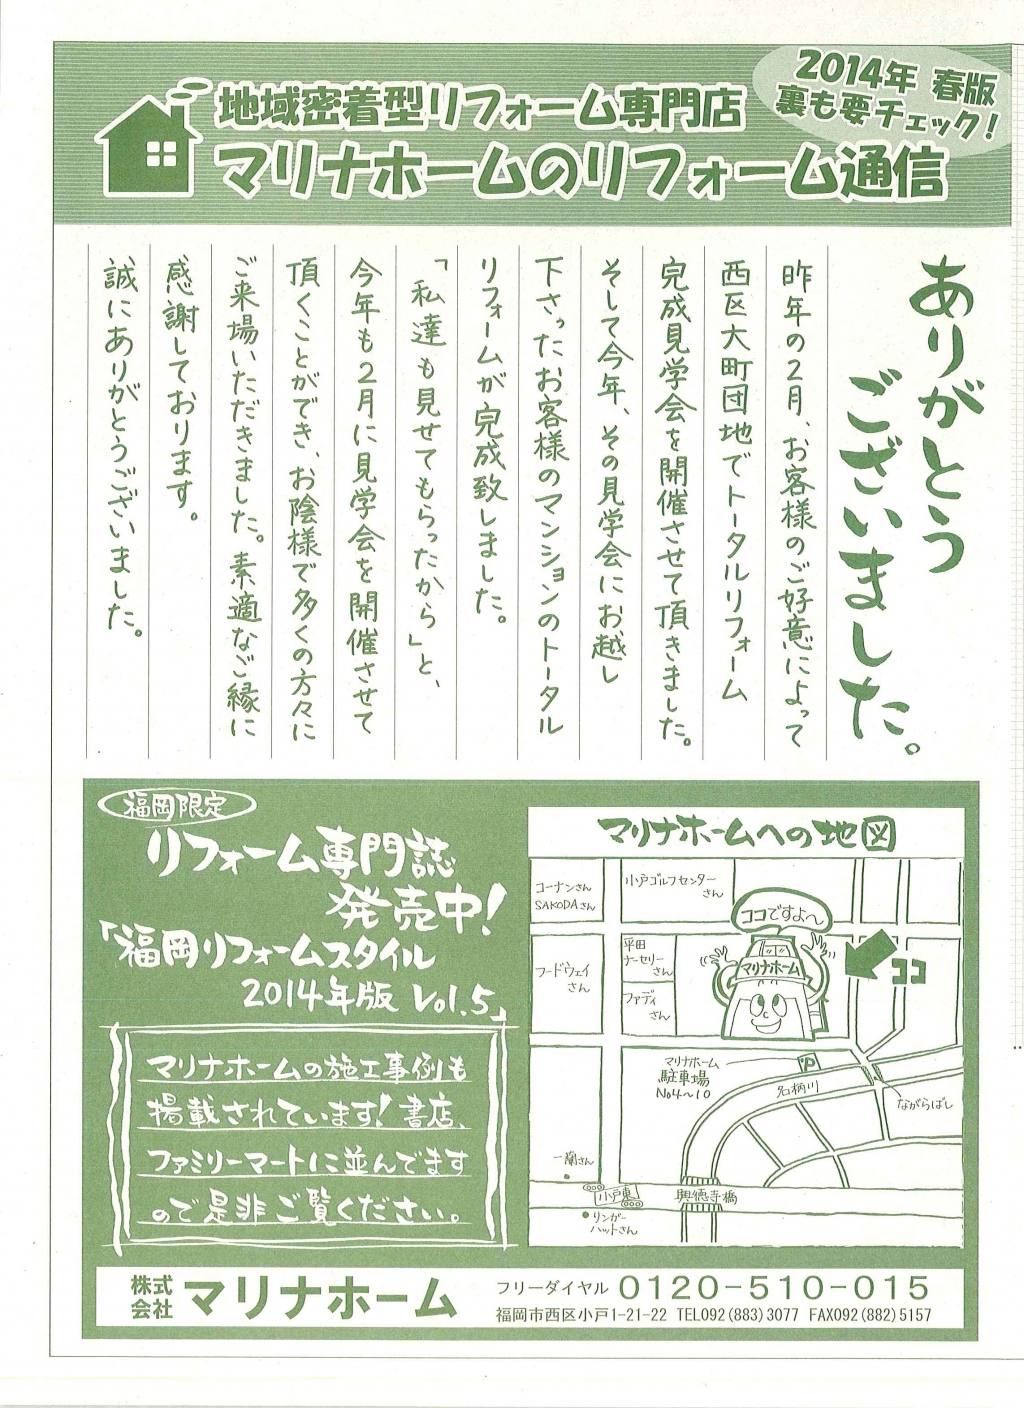 地域密着型リフォーム専門店
マリナホームのリフォーム通信
2014年 春版
裏も要チェック!
ありがとう
ございました。
昨年の2月、お客様のご好意によって
西区大町団地でトータルリフォーム
完成見学会を開催させて頂きました。
そして今年、その見学会にお越し
下さったお客様のマンションのトータル
リフォームが完成致しました。
「私達も見せてもらったから」と、
今年も2月に見学会を開催させて
頂くことができ、お陰様で多くの方々に
ご来場いただきました。素適なご縁に
感謝しております。
誠にありがとうございました。
福岡限定
リフォーム専門誌
発売中!
「福岡リフォームスタイル
2014年版 Vol.5」
マリナホームの施工事例も
掲載されています!書店、
ファミリーマートに並んでます
ので是非ご覧ください。
マリナホームへの地図
コーナンさん
SAKODAさん
小戸ゴルフセンター
さん
ココですよ〜
フードウェイ
さん
平田
ナーセリー
さん
ファディ
さん
マリナホーム
ココ
マリナホーム
駐車場
No4〜10
P
名柄川
ながらばし
一蘭さん
小戸東
興徳寺橋
リンガー
ハットさん
株式
会社
マリナホーム
フリーダイヤル 0120-510-015
福岡市西区小戸1-21-22 TEL092(883)3077 FAX092(882)5157